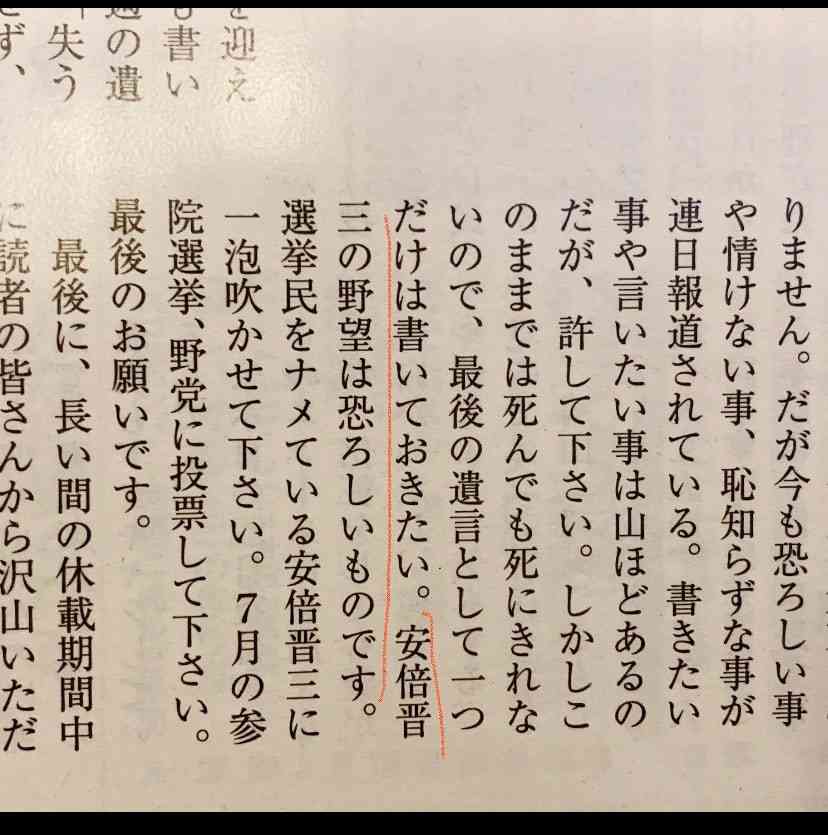 を迎え
も書い
週の遺
「失う
ず、
りません。だが今も恐ろしい事
や情けない事、恥知らずな事が
連日報道されている。書きたい
事や言いたい事は山ほどあるの
だが、許して下さい。しかしこ
のままでは死んでも死にきれな
いので、最後の遺言として一つ
だけは書いておきたい。安倍晋
三の野望は恐ろしいものです。
選挙民をナメている安倍晋三に
一泡吹かせて下さい。7月の参
院選挙、野党に投票して下さい。
最後のお願いです。
最後に、長い間の休載期間中
に読者の皆さんから沢山いただ